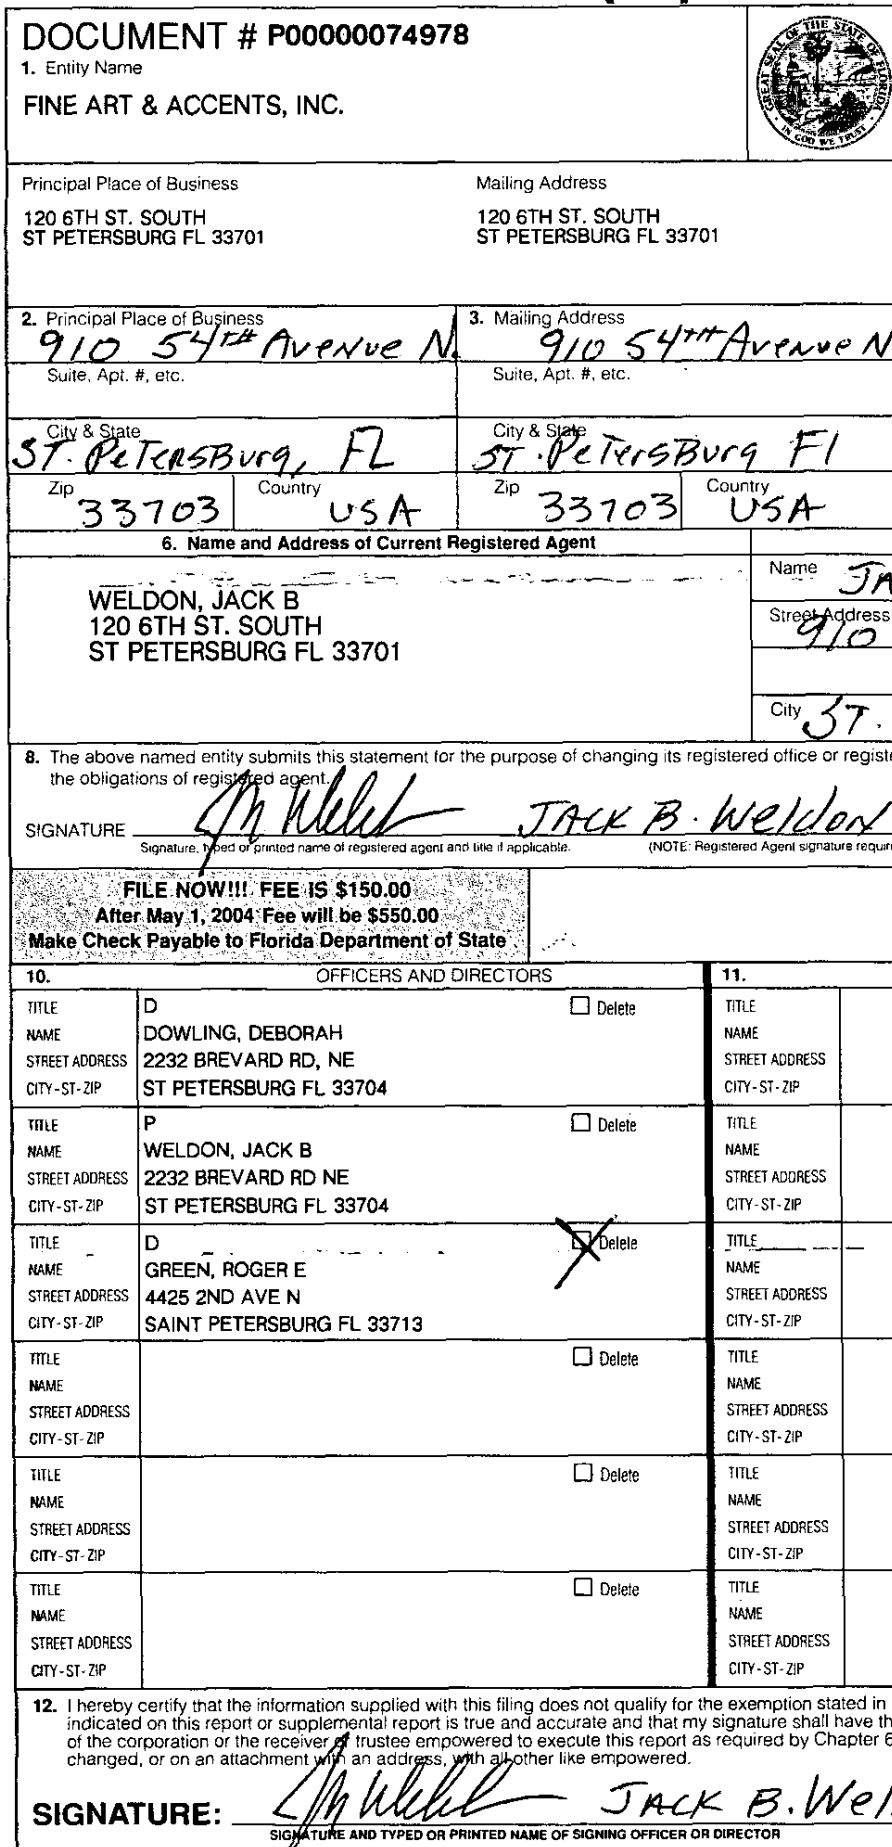 DOCUMENT # P00000074978
1. Entity Name
FINE ART & ACCENTS, INC.
GREAT SEAL OF THE STATE OF FLORIDA
IN GOD WE TRUST
Principal Place of Business
120 6TH ST. SOUTH
ST PETERSBURG FL 33701
Mailing Address
120 6TH ST. SOUTH
ST PETERSBURG FL 33701
2. Principal Place of Business
910 54TH Avenue N.
Suite, Apt. #, etc.
City & State
ST. Petersburg, FL
Zip 33703 Country USA
3. Mailing Address
910 54TH Avenue N
Suite, Apt. #, etc.
City & State
ST. Petersburg Fl
Zip 33703 Country USA
6. Name and Address of Current Registered Agent
WELDON, JACK B
120 6TH ST. SOUTH
ST PETERSBURG FL 33701
Name JA
Street Address
910
City ST.
8. The above named entity submits this statement for the purpose of changing its registered office or registe
the obligations of registered agent.
SIGNATURE JACK B. Weldon
Signature, typed or printed name of registered agent and title if applicable. (NOTE: Registered Agent signature requir
FILE NOW!!! FEE IS $150.00
After May 1, 2004 Fee will be $550.00
Make Check Payable to Florida Department of State
10. OFFICERS AND DIRECTORS 11.
TITLE D Delete TITLE
NAME DOWLING, DEBORAH NAME
STREET ADDRESS 2232 BREVARD RD, NE STREET ADDRESS
CITY-ST-ZIP ST PETERSBURG FL 33704 CITY-ST-ZIP
TITLE P Delete TITLE
NAME WELDON, JACK B NAME
STREET ADDRESS 2232 BREVARD RD NE STREET ADDRESS
CITY-ST-ZIP ST PETERSBURG FL 33704 CITY-ST-ZIP
TITLE D Delete TITLE
NAME GREEN, ROGER E NAME
STREET ADDRESS 4425 2ND AVE N STREET ADDRESS
CITY-ST-ZIP SAINT PETERSBURG FL 33713 CITY-ST-ZIP
TITLE Delete TITLE
NAME NAME
STREET ADDRESS STREET ADDRESS
CITY-ST-ZIP CITY-ST-ZIP
TITLE Delete TITLE
NAME NAME
STREET ADDRESS STREET ADDRESS
CITY-ST-ZIP CITY-ST-ZIP
TITLE Delete TITLE
NAME NAME
STREET ADDRESS STREET ADDRESS
CITY-ST-ZIP CITY-ST-ZIP
12. I hereby certify that the information supplied with this filing does not qualify for the exemption stated in
indicated on this report or supplemental report is true and accurate and that my signature shall have th
of the corporation or the receiver or trustee empowered to execute this report as required by Chapter 6
changed, or on an attachment with an address, with all other like empowered.
SIGNATURE: JACK B. Wel
SIGNATURE AND TYPED OR PRINTED NAME OF SIGNING OFFICER OR DIRECTOR